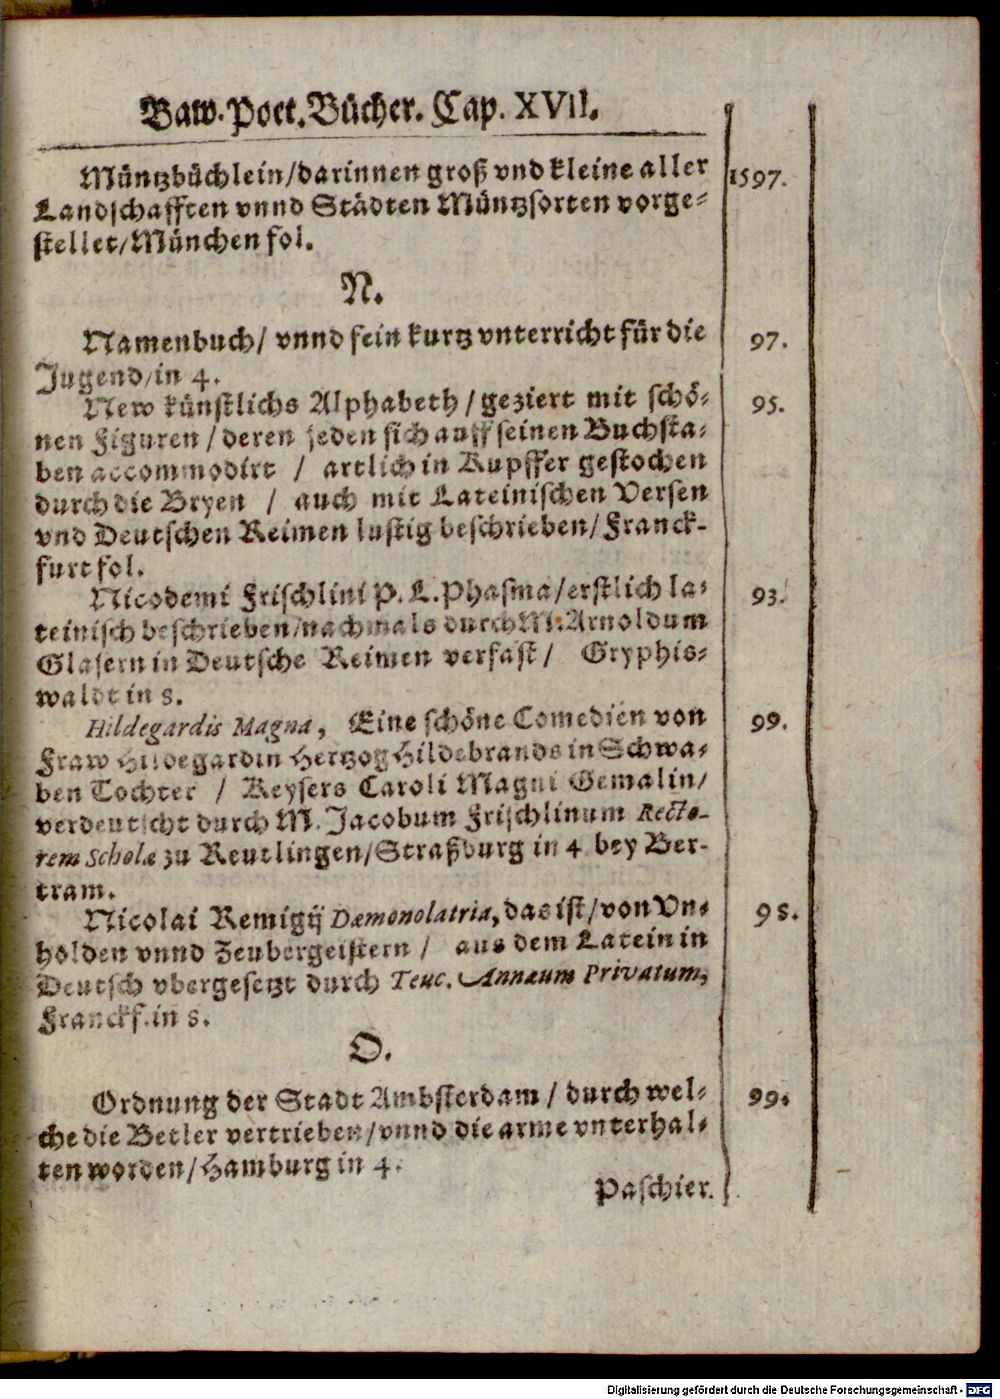 Baw. Poet. Bücher. Cap. XVII.
Müntzbüchlein/darinnen groß vnd kleine aller 1597.
Landschafften vnnd Städten Müntzsorten vorge⸗
stellet/München fol.
N.
Namenbuch/ vnnd fein kurtz vnterricht für die 97.
Jugend/in 4.
New künstlichs Alphabeth / geziert mit schö⸗ 95.
nen Figuren / deren jeden sich auff seinen Buchsta⸗
ben accommodirt / artlich in Kupffer gestochen
durch die Bryen / auch mit Lateinischen Versen
vnd Deutschen Reimen lustig beschrieben/Franck-
furt fol.
Nicodemi Frischlini P. L. Phasma/erstlich la⸗ 93.
teinisch beschrieben/nachmals durch M. Arnoldum
Glasern in Deutsche Reimen verfast / Gryphis⸗
waldt in 8.
Hildegardis Magna, Eine schöne Comedien von 99.
Fraw Hildegardin Hertzog Hildebrands in Schwa⸗
ben Tochter / Keysers Caroli Magni Gemalin/
verdeutscht durch M. Jacobum Frischlinum Recto-
rem Scholæ zu Reutlingen/Straßburg in 4 bey Ber-
tram.
Nicolai Remigij Dæmonolatria, das ist/von Vn⸗ 98.
holden vnnd Zeubergeistern / aus dem Latein in
Deutsch vbergesetzt durch Teuc. Annæum Privatum,
Franckf. in 8.
O.
Ordnung der Stadt Ambsterdam / durch wel⸗ 99.
che die Betler vertrieben/vnnd die arme vnterhal⸗
ten worden/Hamburg in 4.
Paschier.
Digitalisierung gefördert durch die Deutsche Forschungsgemeinschaft - DFG